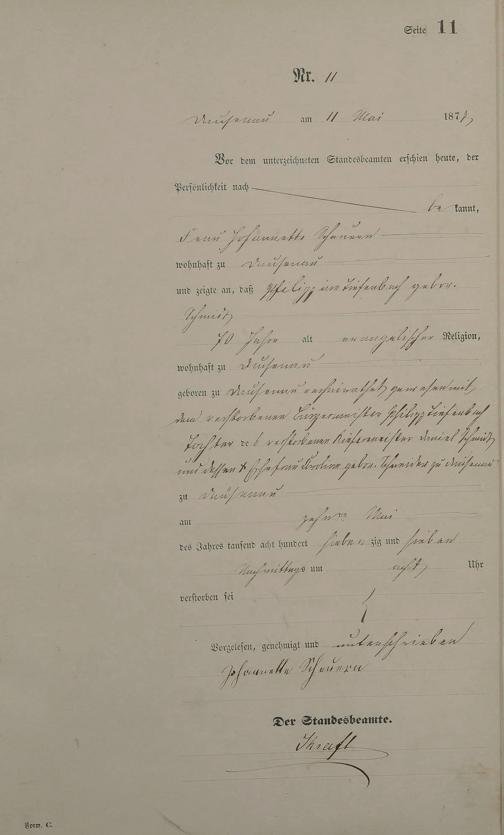 Seite 11
Nr. 11
Dausenau am 11 Mai 1877
Vor dem unterzeichneten Standesbeamten erschien heute, der
Persönlichkeit nach
be kannt,
Frau Johannette Scheuern
wohnhaft zu Dausenau
und zeigte an, daß Philippine Tiefenbach gebor.
Schmidt
70 Jahre alt evangelischer Religion,
wohnhaft zu Dausenau
geboren zu Dausenau verheirathet gewesen mit
dem verstorbenen Bürgermeister Philipp Tiefenbach
Tochter des verstorbenen Küfermeister Daniel Schmidt
und dessen Ehefrau gebor. Schneider zu Dausenau
zu Dausenau
am zehn Mai
des Jahres tausend acht hundert sieben zig und sieben
Nachmittags um acht Uhr
verstorben sei
Vorgelesen, genehmigt und unterschrieben
Johannette Scheuern
Der Standesbeamte.
Kraft
Form. C.